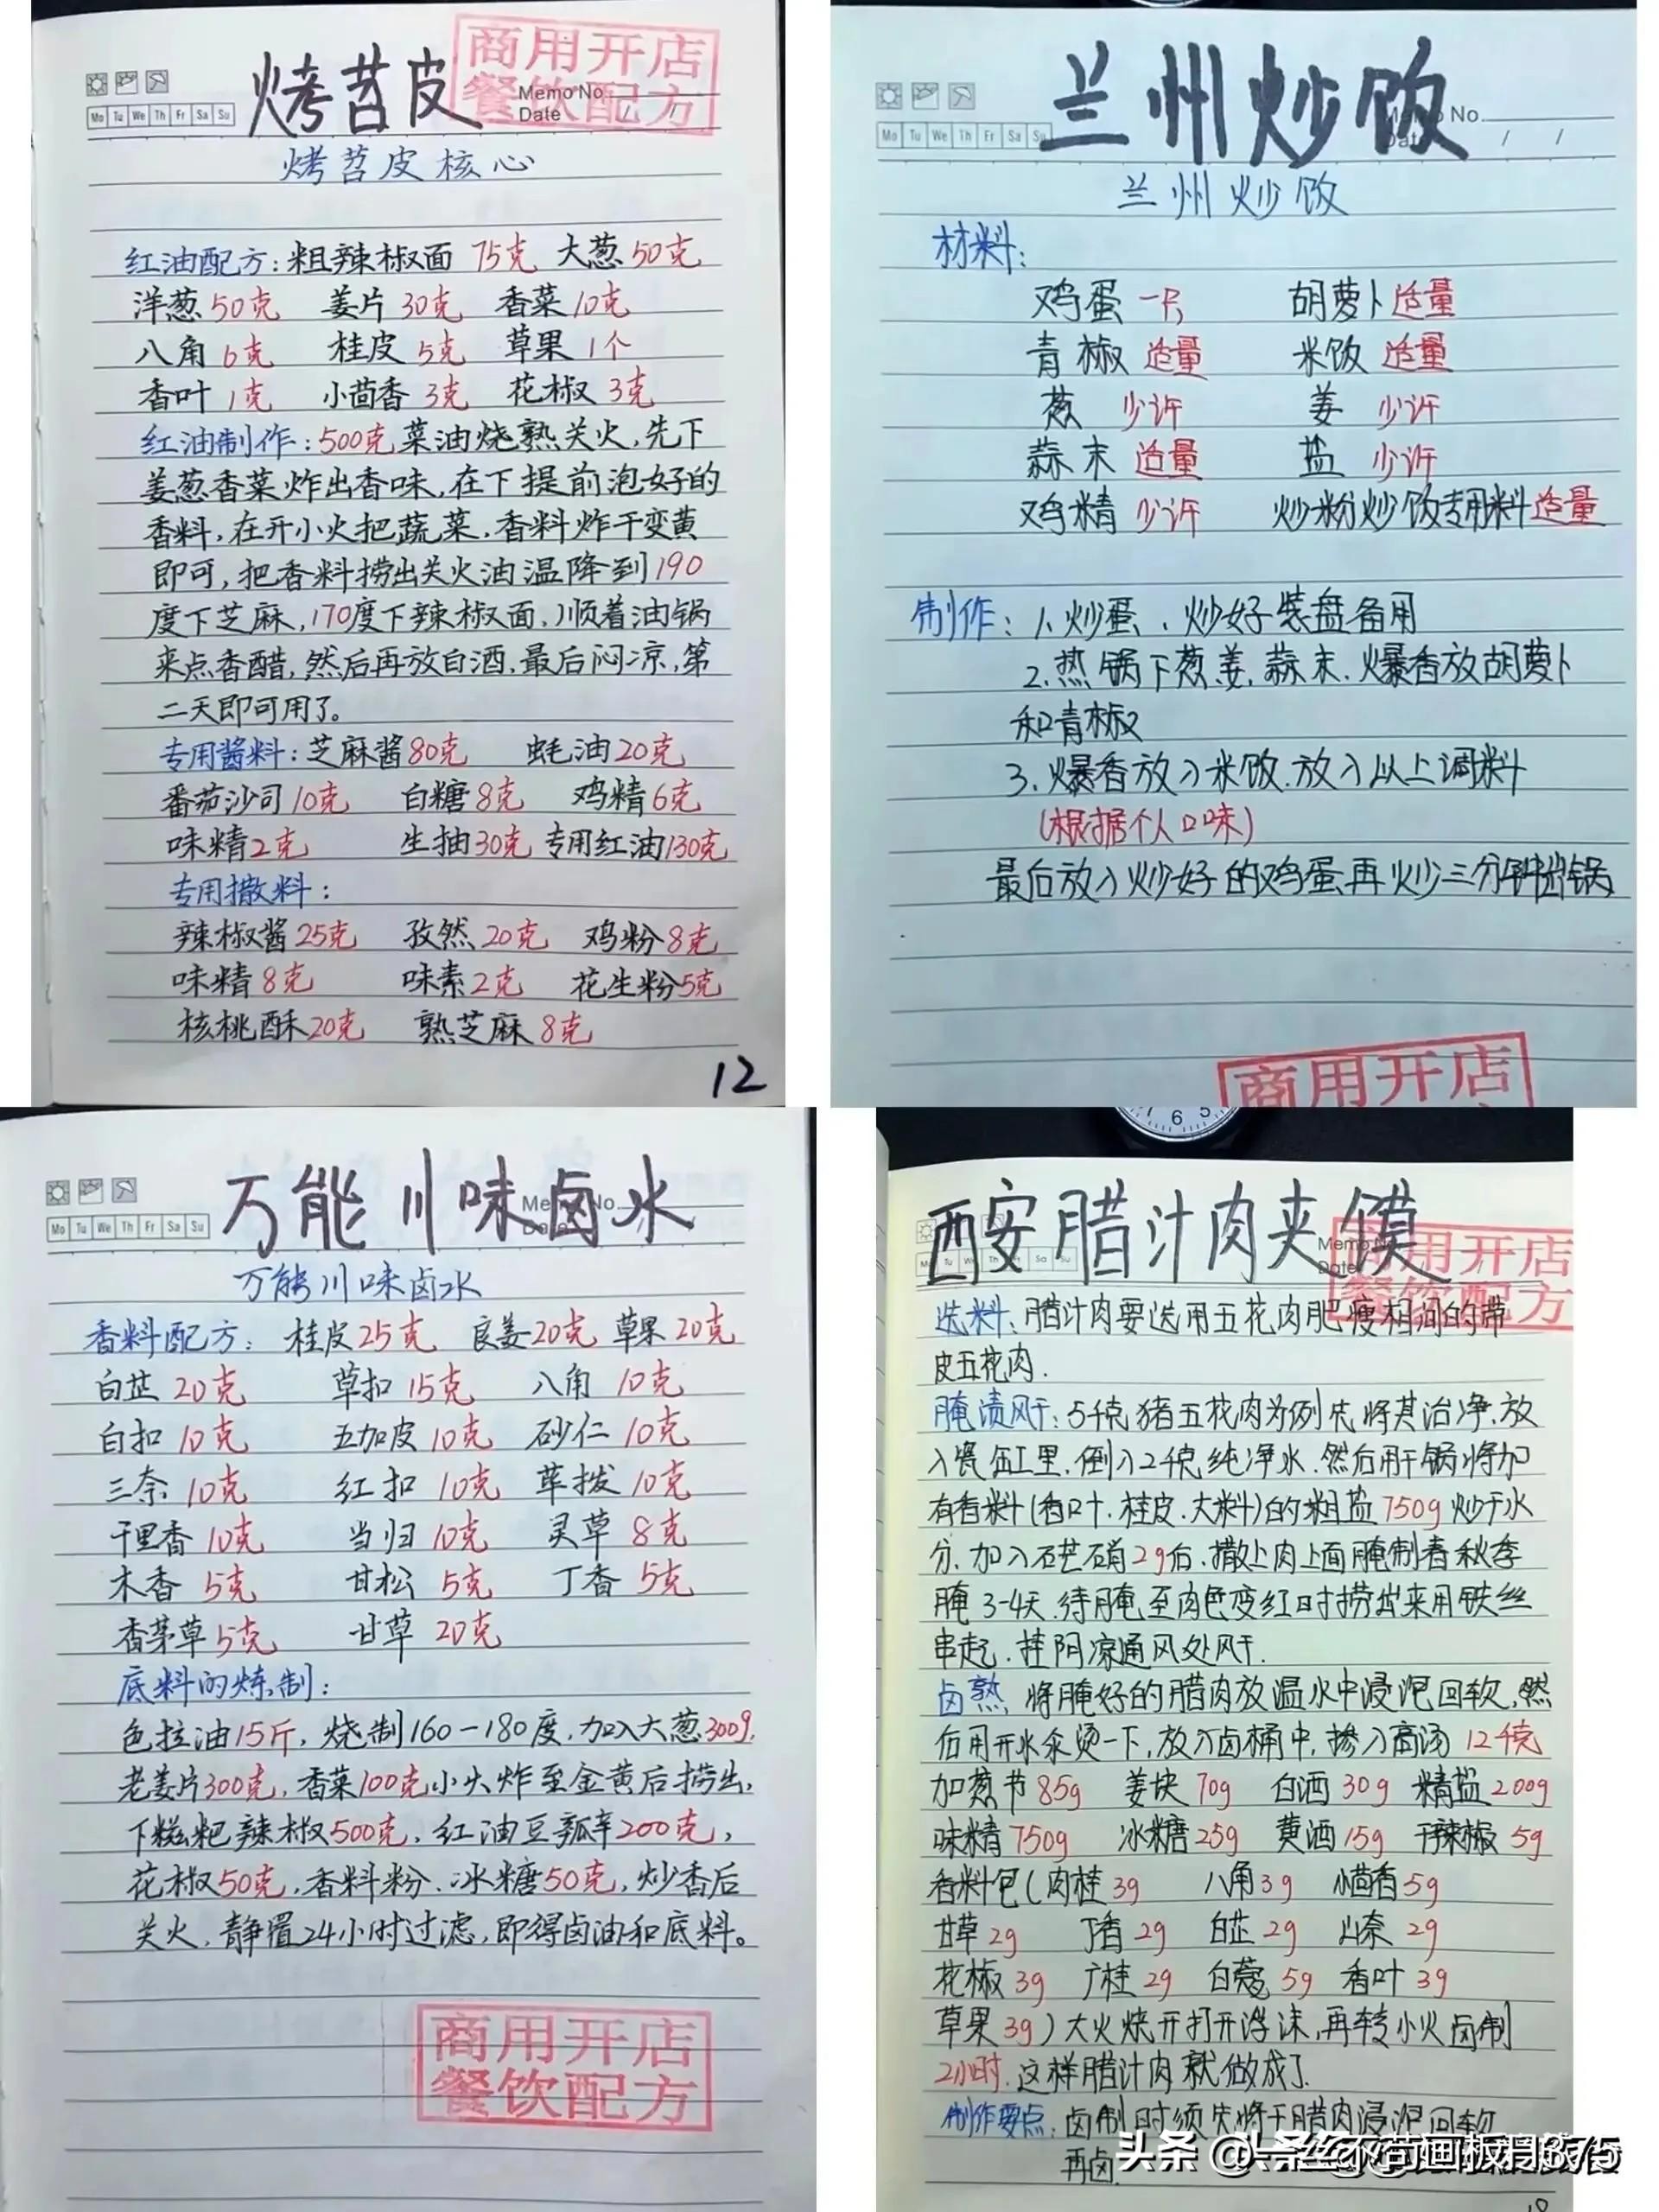 烤苕皮
商用开店
餐饮配方
Memo No.
Date / /
Mo Tu We Th Fr Sa Su
烤苕皮核心
红油配方：粗辣椒面 75克 大葱50克
洋葱50克 姜片30克 香菜10克
八角6克 桂皮5克 草果1个
香叶1克 小茴香3克 花椒3克
红油制作：500克菜油烧熟关火，先下
姜葱香菜炸出香味，在下提前泡好的
香料，在开小火把蔬菜，香料炸干变黄
即可，把香料捞出关火油温降到190
度下芝麻，170度下辣椒面，顺着油锅
来点香醋，然后再放白酒，最后闷凉，第
二天即可用了。
专用酱料：芝麻酱80克 蚝油20克
番茄沙司10克 白糖8克 鸡精6克
味精2克 生抽30克 专用红油130克
专用撒料：
辣椒酱25克 孜然20克 鸡粉8克
味精8克 味素2克 花生粉5克
核桃酥20克 熟芝麻8克
12
兰州炒饭
Memo No.
Date / /
Mo Tu We Th Fr Sa Su
兰州炒饭
材料：
鸡蛋一只 胡萝卜适量
青椒 适量 米饭 适量
葱 少许 姜 少许
蒜末 适量 盐 少许
鸡精 少许 炒粉炒饭专用料适量
制作：1、炒蛋、炒好装盘备用
2.热锅下葱姜，蒜末.爆香放胡萝卜
和青椒
3.爆香放入米饭.放入以上调料
(根据个人口味)
最后放入炒好的鸡蛋再炒三分钟出锅
商用开店
万能川味卤水
Memo No.
Date
Mo Tu We Th Fr Sa Su
万能川味卤水
香料配方：桂皮25克 良姜20克 草果20克
白芷 20克 草扣 15克 八角 10克
白扣 10克 五加皮10克 砂仁 10克
三奈 10克 红扣 10克 荜拨 10克
千里香 10克 当归 10克 灵草 8克
木香 5克 甘松 5克 丁香 5克
香茅草5克 甘草 20克
底料的炼制：
色拉油15斤，烧制160-180度，加入大葱300g，
老姜片300克，香菜100克小火炸至金黄后捞出，
下糍粑辣椒500克，红油豆瓣200克，
花椒50克，香料粉、冰糖50克，炒香后
关火，静置24小时过滤，即得卤油和底料。
商用开店
餐饮配方
7 6 5
西安腊汁肉夹馍
Memo No.
Date
商用开店
餐饮配方
选料：腊汁肉要选用五花肉肥瘦相间的带
皮五花肉.
腌渍风干：5千克猪五花肉为例先将其治净，放
入瓷缸里，倒入2千克纯净水.然后用干锅将加
有香料(香叶.桂皮.大料)的粗盐750g炒干水
分.加入芒硝2g后.撒上肉上面腌制春秋季
腌3-4天.待腌至肉色变红时捞出来用铁丝
串起.挂阴凉通风处风干.
卤熟 将腌好的腊肉放温水中浸泡回软，然
后用开水汆烫一下，放入卤桶中，掺入高汤 12千克
加葱节85g 姜块70g 白酒30g 精盐200g
味精750g 冰糖25g 黄酒15g 干辣椒5g
香料包(肉桂3g 八角3g 小茴香5g
甘草2g 丁香2g 白芷2g 山奈2g
花椒3g 广桂2g 白蔻5g 香叶3g
草果3g)大火烧开打开浮沫，再转小火卤制
2小时.这样腊汁肉就做成了.
制作要点：卤制时须先将干腊肉浸泡回软
再卤.
头条